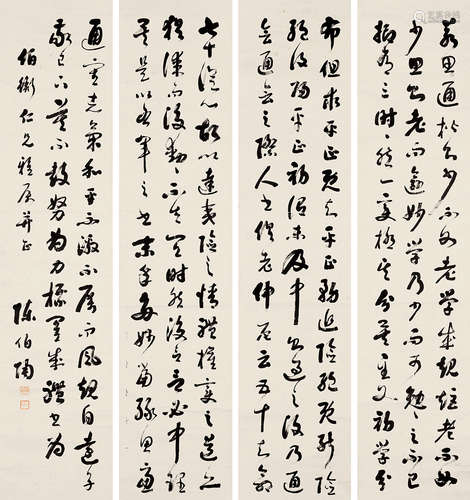 若思通楷則少不如老學成規矩老不如
少思則老而逾妙學乃少而可勉勉之不已
抑有三時時然一變極其分矣至如初學分
布但求平正既知平正務追險絕既能險
絕復歸平正初謂未及中則過之後乃通
會通會之際人書俱老仲尼云五十知命
七十從心故以達夷險之情體權變之道亦
猶謀而後動動不失宜時然後言言必中理
矣是以右軍之書末年多妙當緣思慮
通審志氣和平不激不厲而風規自遠子
敬已下莫不鼓努為力標置成體書為
伯衡仁兄雅屬并正
陳伯陶